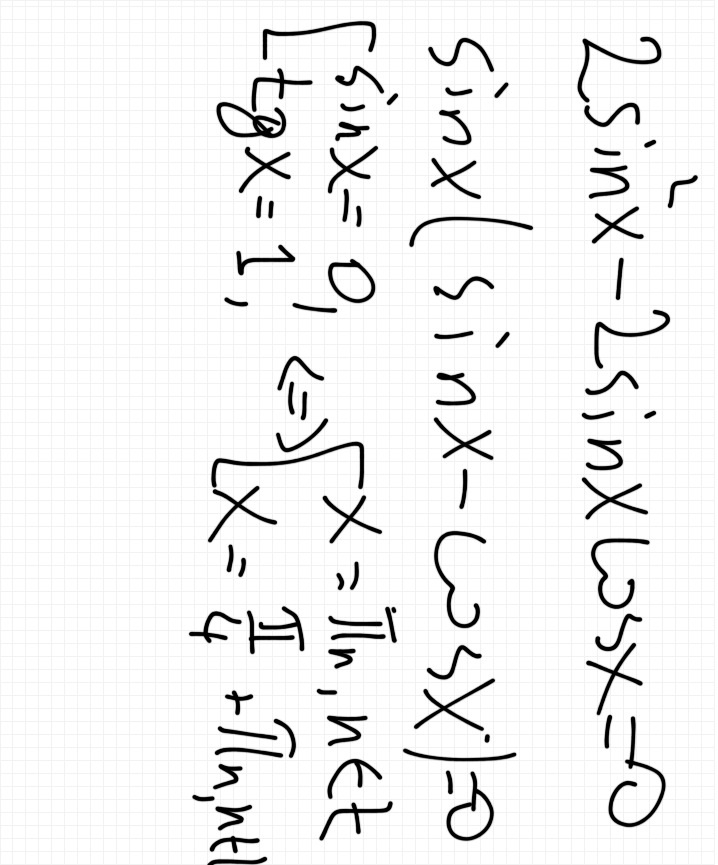 2sin²x - 2sinxcosx = 0
sinx(sinx - cosx) = 0
[ sinx = 0, <=> [ x = πn, n∈Z
tgx = 1; x = π/4 + πn, n∈